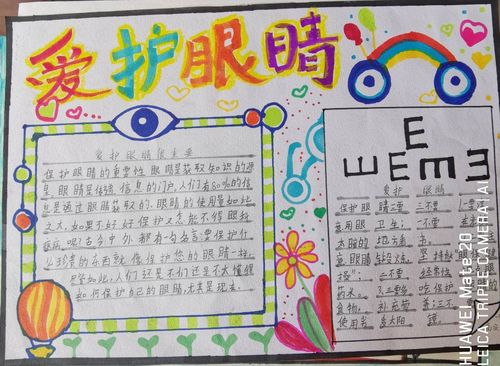 爱护眼睛
爱护眼睛很重要
保护眼睛的重要性眼睛是获取知识的源
息,眼睛是传递信息的门户,人们有80%的信
息是通过眼睛获取的.眼睛的使用量如此
之大,如果不好好保护又怎能不得眼科
疾病呢?古今中外都有一句名言:要保护什
么珍贵的东西就像保护您的眼睛一样.
尽管如此,人们还是不们还是不太懂得
如何保护自己的眼睛,尤其是现在.
E
E E m E
爱护 眼睛
保护眼睛二要 二不要
意用眼卫生: 一不要
太暗的地方走
意眼睛 坚持
二不要 经常
药米。 三要 吃保护
食物, 补充
使用 高太阳 镜。
HUAWEI Mate 20
LEICA TRIPLE CAMERA | AI